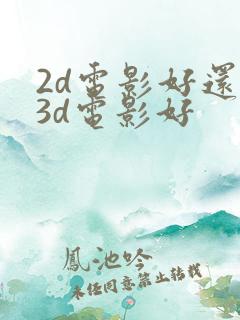 2d電影好還
3d電影好
鳳池吟
未經同意禁止轉載